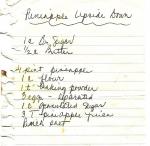 Pineapple Upside Down
1 c Br. Sugar
1/2 c Butter
4 pineapple
1 c flour
1 t Baking powder
3 eggs - Separated
1 c granulated Sugar
3 T pineapple juice
Pinch salt